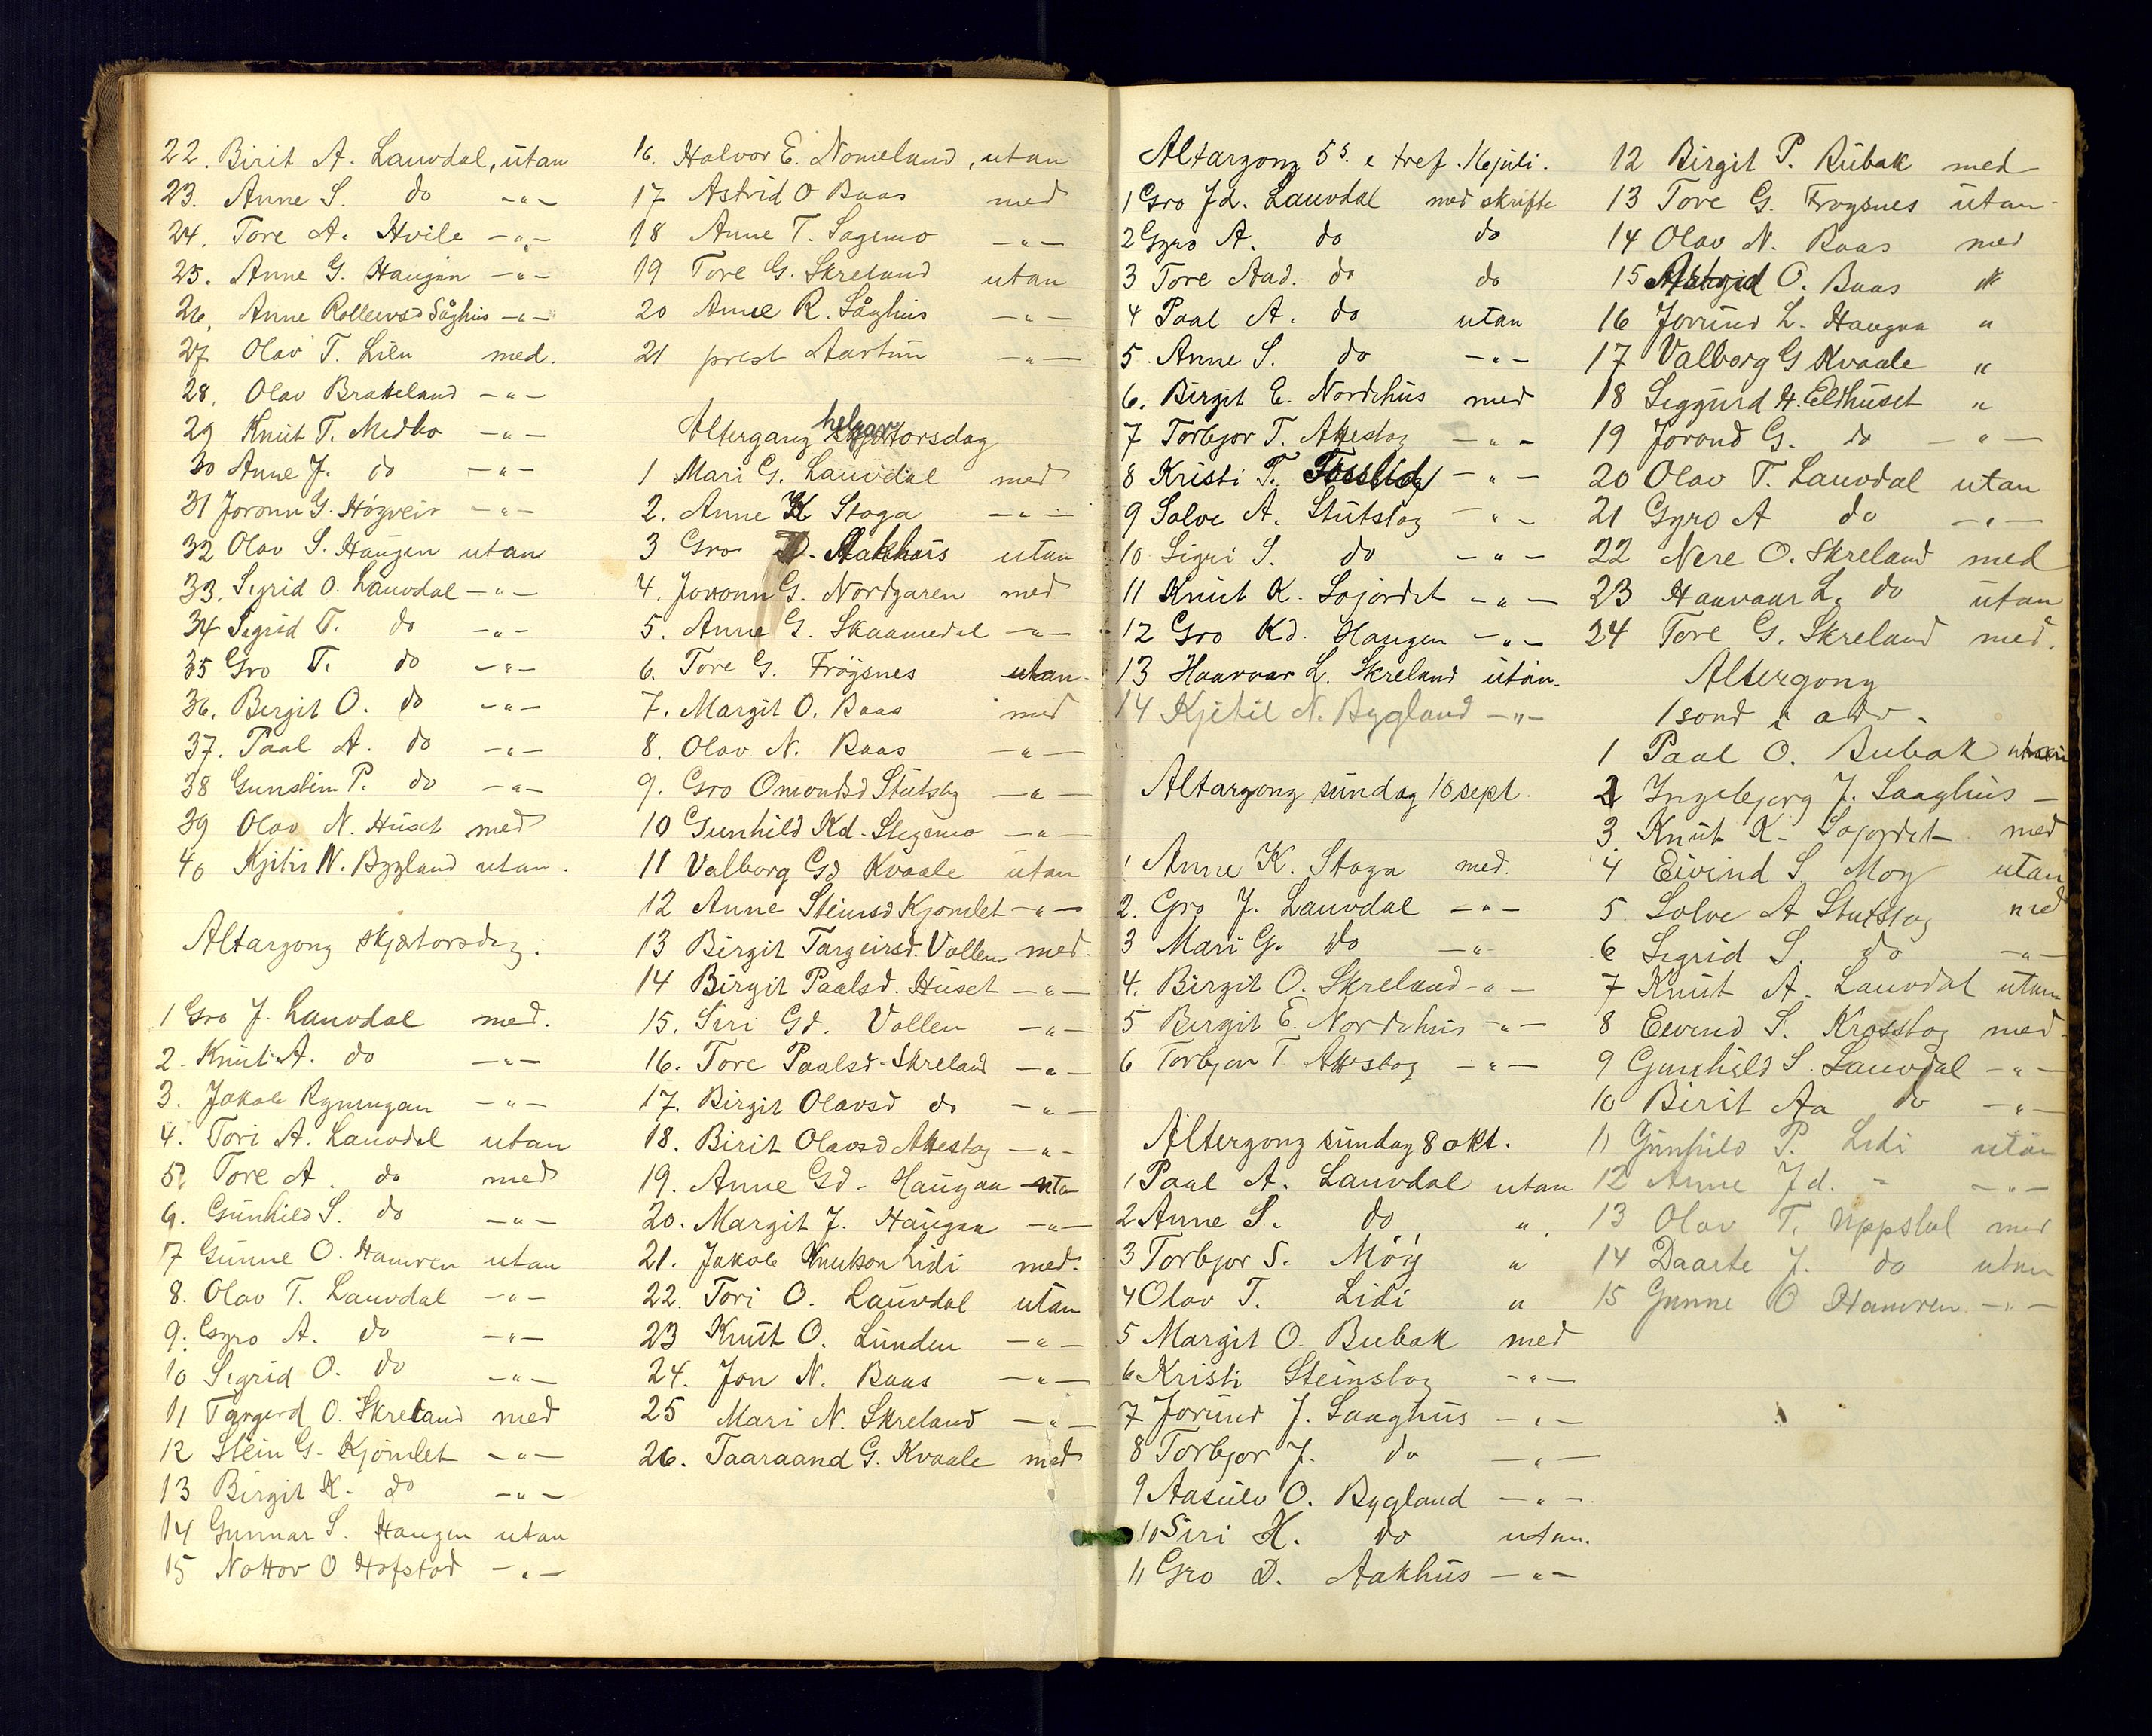 22. Birit A. Lauvdal, utan
23. Anne S. do -"-
24. Tore A. Hvile -"-
25. Anne G. Haugån -"-
26. Anne Rolleivsd Såghus -"-
27 Olav T. Lien med.
28. Olav Brakeland -"-
29 Knut T. Medbo -"-
30 Anne J. do -"-
31 Joronn G. Høgveiv -"-
32 Olav S. Haugen utan
33. Sigrid O. Lauvdal -"-
34 Sigrid T. do -"-
35 Gro T. do -"-
36. Bergit O. do -"-
37. Paal A. do -"-
38 Gunstein P. do -"-
39 Olav N. Huset med
40 Kjitil N. Bygland utan.
Altargong skjærtorsdag:
1 Gro J. Lauvdal med.
2. Knut A. do -"-
3. Jakob Rynningan -"-
4. Tori A. Lauvdal utan
5. Tore A. do med
6. Gunhild S. do -"-
7 Gunne O. Hamren utan
8. Olav T. Lauvdal -"-
9. Gyro A. do -"-
10 Sigrid O. do -"-
11 Targerd O. Skreland med
12 Stein G. Kjømlet -"-
13 Birgit K. do -"-
14 Gunnar S. Haugen utan
15 Nottov O Hofstad -"-
16. Halvor E. Nomeland, utan
17 Astrid O Baas med
18 Anne T. Sagemo -"-
19 Tore G. Skreland utan
20 Anne R. Såghus -"-
21 prest Aartun -"-
Altergang helgartorsdag
1 Mari G. Lauvdal med
2. Anne K Staga -"-
3 Gro D. Aakhus utan
4. Joronn G. Nordgaren med
5. Anne G. Skaamedal -"-
6. Tore G. Frøysnes utan
7. Margit O. Baas med
8. Olav N. Baas -"-
9. Gro Omondsd Stutslog -"-
10 Gunhild Kd. Stegemo -"-
11 Valborg Gd Kvaale utan
12 Anne Steinsd Kjomlet -"-
13 Birgit Targeirsd. Vollen med.
14 Birgit Paalsd. Huset -"-
15. Siri Gd. Vollen -"-
16. Tore Paalsd. Skreland -"-
17. Birgit Olavsd do -"-
18. Birit Olavsd Akeslog -"-
19. Anne Gd. Haugaa utan
20. Margit J. Haugaa -"-
21. Jakob Knutson Lidi med.
22. Tori O. Lauvdal utan
23 Knut O. Lunden -"-
24. Jon N. Baas -"-
25 Mari N. Skreland -"-
26. Taaraand G. Kvaale med
Altargong 5 s. e tref. 16 juli.
1 Gro Jd. Lauvdal med skrifte
2 Gyro A. do do
3 Tore Aad. do do
4 Paal A. do utan
5. Anne S. do -"-
6. Birgit E. Nordehus med
7 Torbjor T. Akeslog -"-
8 Kristi T. -"-
9 Solve A. Stutslog -"-
10 Sigri S. do -"-
11 Knut K. Lojordet -"-
12 Gro Kd. Haugen -"-
13 Haavar L. Skreland utan.
14 Kjetil N. Bygland -"-
Altargong sundag 10 sept.
1 Anne K. Staga med.
2. Gro J. Lauvdal -"-
3 Mari G. do -"-
4. Birgit O. Skreland -"-
5 Bergit E. Nordehus -"-
6 Torbjor T. Akeslog -"-
Altergong sundag 8 okt.
1 Paal A. Lauvdal utan
2 Anne S. do "
3 Torbjor S. Möy "
4 Olav T. Lidi "
5 Margit O. Bubak med
6 Kristi Steinslog -"-
7 Jorund J. Saaghus -"-
8 Torbjor J. do -"-
9 Aasulv O. Bygland -"-
10 Siri H. do utan.
11 Gro D. Aakhus -"-
12 Birgit P. Bubak med
13 Tore G. Froysnes utan
14 Olav N. Baas med
15 Astrid O. Baas "
16 Jorund L. Haugaa "
17 Valborg G Kvaale "
18 Siggurd H. Eldhuset "
19 Jorand G. do -"-
20 Olav T. Lauvdal utan
21 Gyro A do -"-
22 Nere O. Skreland med
23 Haavaar L. do utan
24 Tore G. Skreland med.
Altergong
1 sond i adv.
1 Paal O. Bubak utan
2 Ingebjorg J. Saaghus -
3. Knut K. Lojordet med
4 Eivind S. Moy utan
5. Solve A Stutslog med
6 Sigrid S. do -"-
7 Knut A. Lauvdal utan
8 Eivind S. Krosslog med
9 Gunhild S. Lauvdal -"-
10 Birit Aa do -"-
11 Gunhild P. Lidi utan
12 Anne Jd. " -"-
13 Olav T. Uppstal med
14 Daarte J. do utan
15 Gunne O Hamren -"-